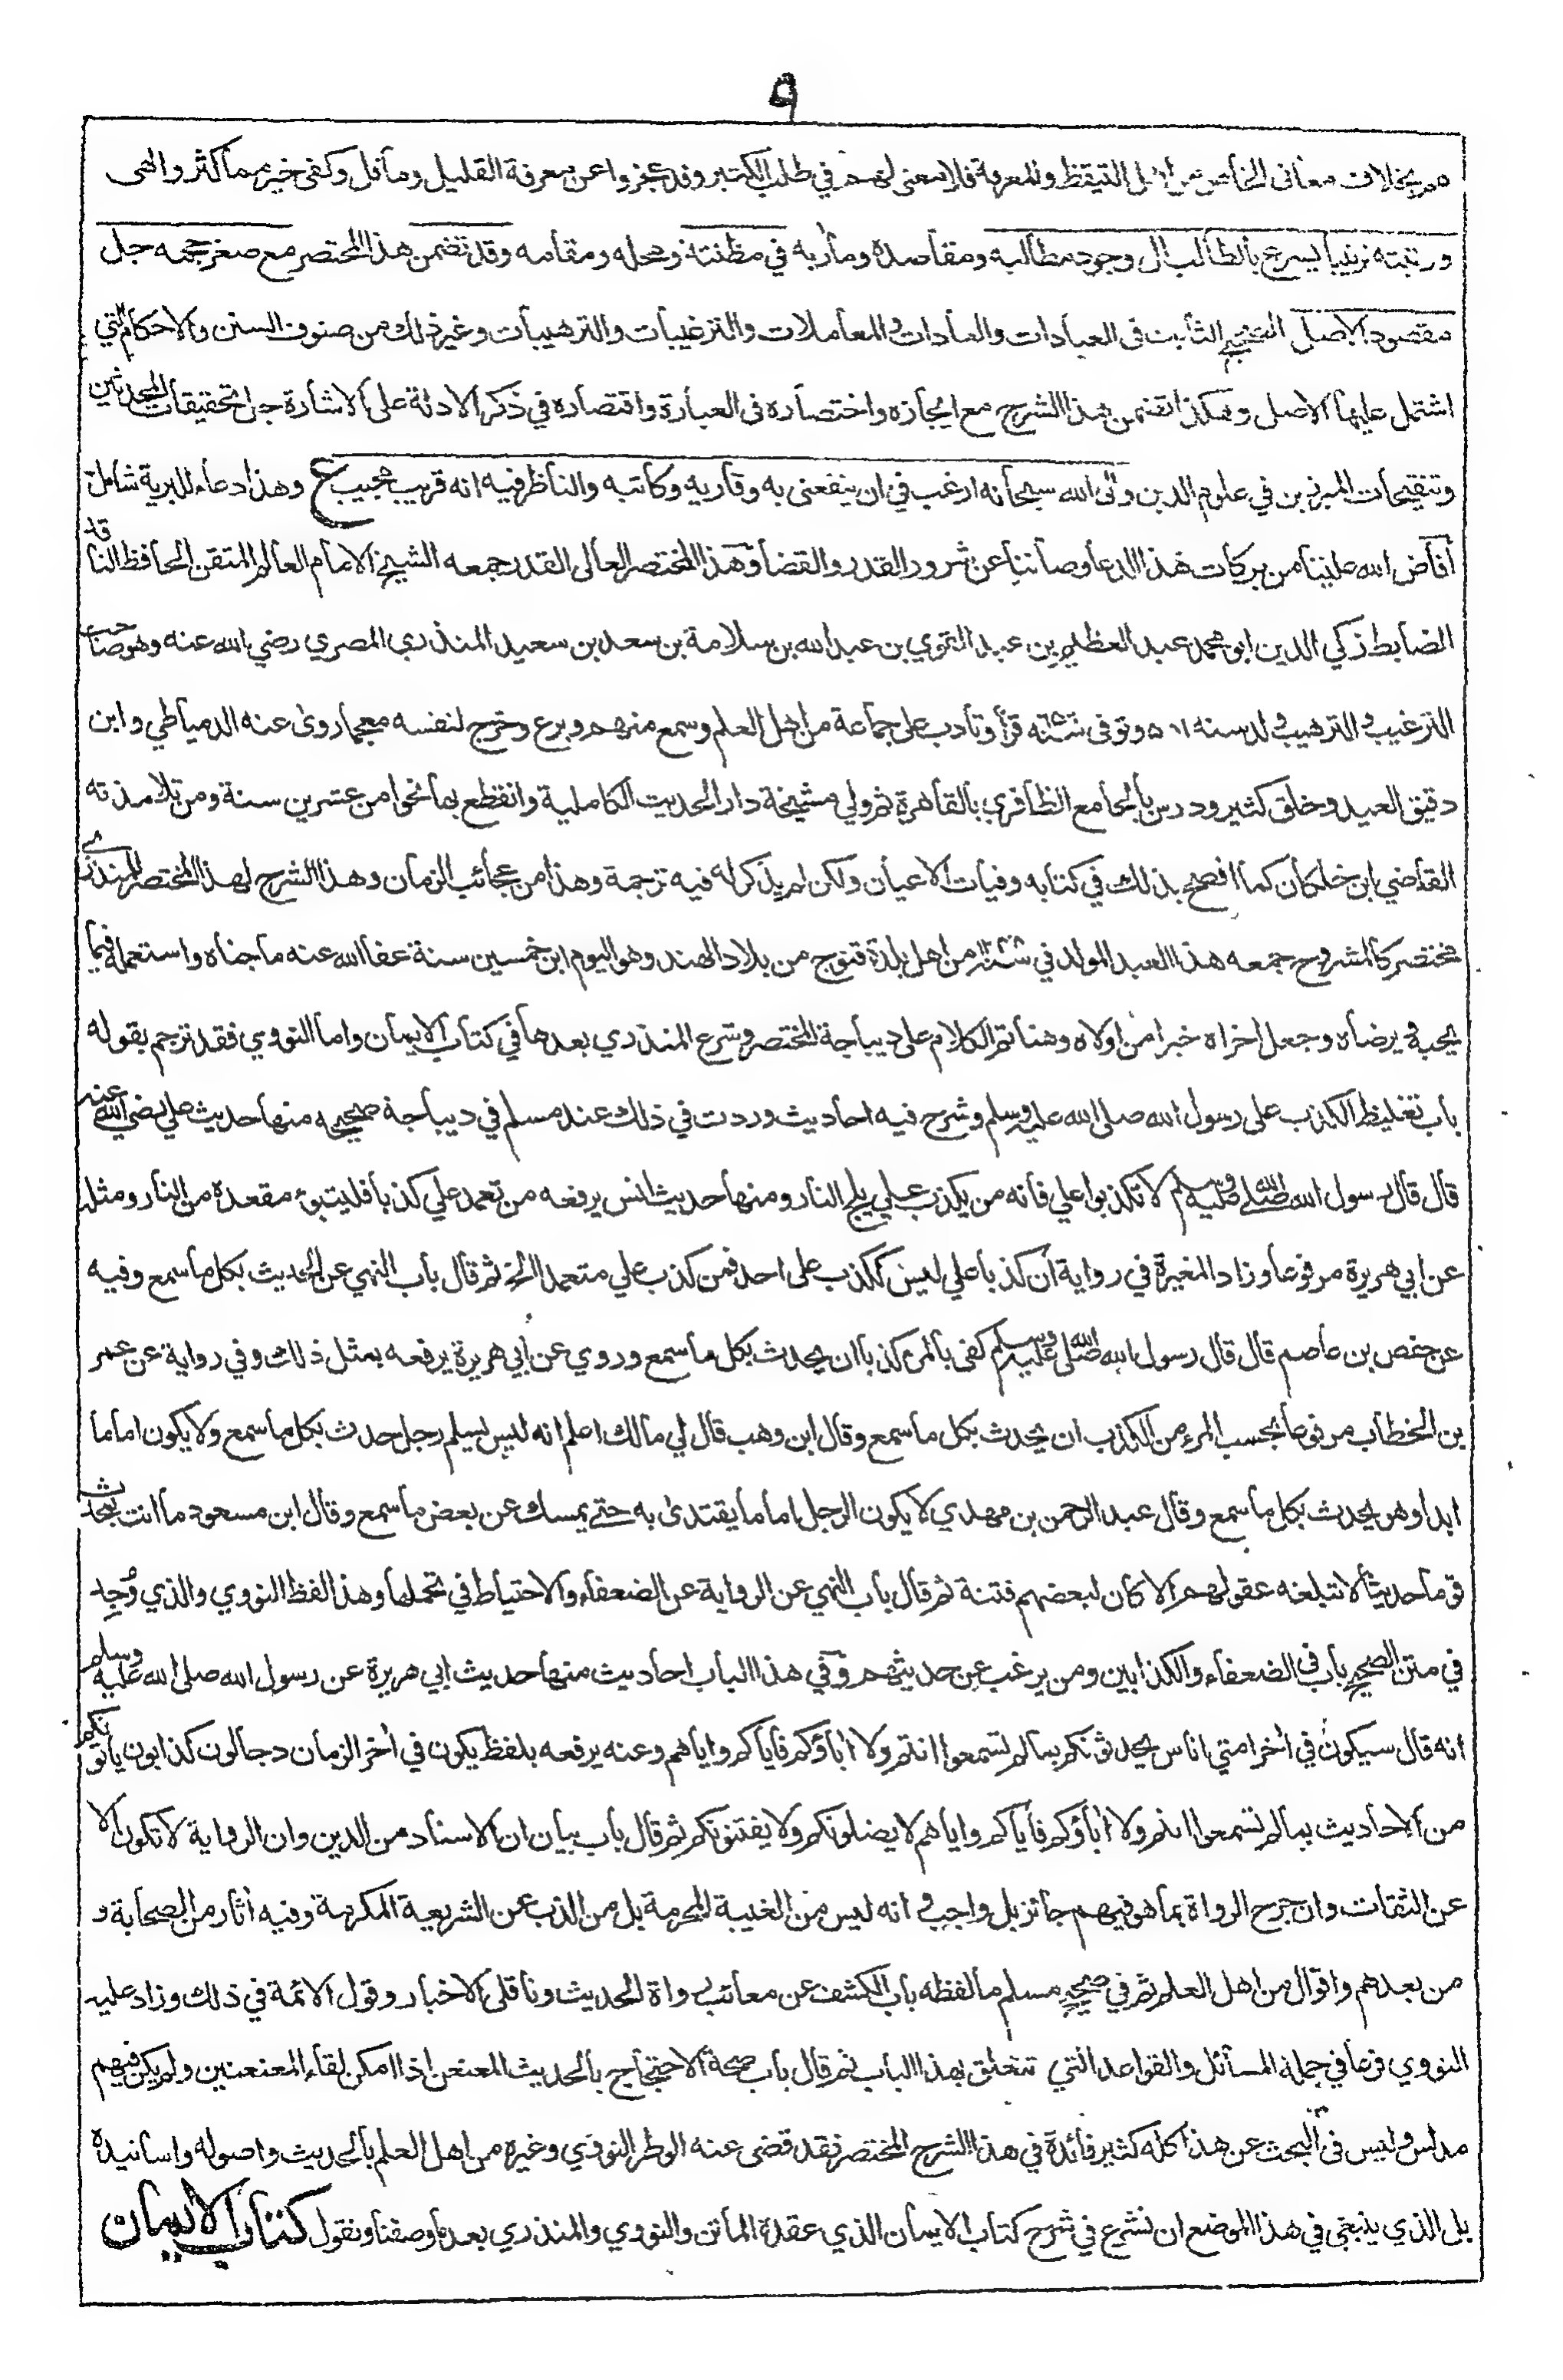 ٩
مر بخلاف معاني الخاص من اهل التيقظ والمعرفة فلا معنى لهم في طلب الكثير وقد عجزوا عن معرفة القليل وما قل وكفى خير مما كثر والهى
ورتبته ترتيبا يسرع بالطالب الى وجود مطالبه ومقاصده ومأربه في مظنته ومحله ومقامه وقد تضمن هذا المختصر مع صغر حجمه جل
مقصود الاصل الصحيح الثابت فى العبادات والعادات والمعاملات والترغيبات والترهيبات وغير ذلك من صنوف السنن والاحكام التي
اشتمل عليها الاصل وهكذا تضمن هذا الشرح مع ايجازه واختصاره فى العبارة واقتصاره في ذكر الادلة على الاشارة جل تحقيقات المحدثين
وتنقيحات المبرزين في علوم الدين والى الله سبحانه ارغب في ان ينفعنى به وقاريه وكاتبه والناظر فيه انه قريب مجيب ع وهذا دعاء للبرية شامل
أفاض الله علينا من بركات هذا الدعا وصاننا عن شرور القدر والقضا وهذا المختصر العالى القدر جمعه الشيخ الامام العالم المتقن الحافظ الناقد
الضابط زكي الدين ابو محمد عبد العظيم بن عبد القوي بن عبد الله بن سلامة بن سعد بن سعيد المنذري المصري رضي الله عنه وهو صاحب
الترغيب والترهيب ولد سنه ٥٨١ وتوفى سنة ٦٥٦ قرأ وتأدب على جماعة من اهل العلم وسمع منهم وبرع وخرج لنفسه معجما روى عنه الدمياطي وابن
دقيق العيد وخلق كثير ودرس بالجامع الظافري بالقاهرة ثم ولي مشيخة دار الحديث الكاملية وانقطع بها نحوا من عشرين سنة ومن تلامذته
القاضي ابن خلكان كما افصح بذلك في كتابه وفيات الاعيان ولكن لم يذكر له فيه ترجمة وهذا من عجائب الزمان وهذا الشرح لهذا المختصر للمنذري
مختصر كالمشروح جمعه هذا العبد المولد في من اهل بلدة قنوج من بلاد الهند وهو اليوم ابن خمسين سنة عفا الله عنه ما جناه واستعمله فيما
يحبه ويرضاه وجعل اخراه خيرا من اولاه وهنا تم الكلام على ديباجة المختصر وشرع المنذري بعدها في كتاب الايمان واما النووي فقد ترجم بقوله
باب تغليظ الكذب على رسول الله صلى الله عليه وسلم وشرح فيه احاديث وردت في ذلك عند مسلم في ديباجة صحيحه منها حديث علي رضي الله عنه
قال قال رسول الله صلى الله عليه وسلم لا تكذبوا علي فانه من يكذب علي يلج النار ومنها حديث انس يرفعه من تعمد علي كذبا فليتبوء مقعده من النار ومثله
عن ابي هريرة مرفوعا وزاد المغيرة في رواية ان كذبا علي ليس ككذب على احد فمن كذب علي متعمدا الخ ثم قال باب النهي عن الحديث بكل ما سمع وفيه
عن حفص بن عاصم قال قال رسول الله صلى الله عليه وسلم كفى بالمرء كذبا ان يحدث بكل ما سمع وروي عن ابي هريرة يرفعه بمثل ذلك وفي رواية عن عمر
بن الخطاب مرفوعا بحسب المرء من الكذب ان يحدث بكل ما سمع وقال ابن وهب قال لي مالك اعلم انه ليس يسلم رجل حدث بكل ما سمع ولا يكون اماما
ابدا وهو يحدث بكل ما سمع وقال عبد الرحمن بن مهدي لا يكون الرجل اماما يقتدى به حتى يمسك عن بعض ما سمع وقال ابن مسعود ما انت بمحدث
قوما حديثا لا تبلغه عقولهم الا كان لبعضهم فتنة ثم قال باب النهي عن الرواية عن الضعفاء والاحتياط في تحملها وهذا لفظ النووي والذي وُجِد
في متن الصحيح باب فى الضعفاء والكذابين ومن يرغب عن حديثهم وفي هذا الباب احاديث منها حديث ابي هريرة عن رسول الله صلى الله عليه وسلم
انه قال سيكون في أخر امتي اناس يحدثونكم بما لم تسمعوا انتم ولا اباؤكم فاياكم واياهم وعنه يرفعه بلفظ يكون في أخر الزمان دجالون كذابون يأتونكم
من الاحاديث بما لم تسمعوا انتم ولا اباؤكم فاياكم واياهم لا يضلونكم ولا يفتنونكم ثم قال باب بيان ان الاسناد من الدين وان الرواية لا تكون الا
عن الثقات وان جرح الرواة بما هو فيهم جائز بل واجب وانه ليس من الغيبة المحرمة بل من الذب عن الشريعة المكرمة وفيه أثار من الصحابة و
من بعدهم واقوال من اهل العلم ثم في صحيح مسلم ما لفظه باب الكشف عن معائب رواة الحديث وناقلى الاخبار وقول الائمة في ذلك وزاد عليه
النووي فرعا في جملة المسائل والقواعد التي تتعلق بهذا الباب ثم قال باب صحة الاحتجاج بالحديث المعنعن اذا امكن لقاء المعنعنين ولم يكن فيهم
مدلس وليس فى البحث عن هذا كله كثير فائدة في هذا الشرح المختصر فقد قضى عنه الوطر النووي وغيره من اهل العلم بالحديث واصوله واسانيده
بل الذي ينبغي في هذا الموضع ان نشرع في شرح كتاب الايمان الذي عقده الماتن والنووي والمنذري بعد ما وصفنا ونقول كتاب الايمان